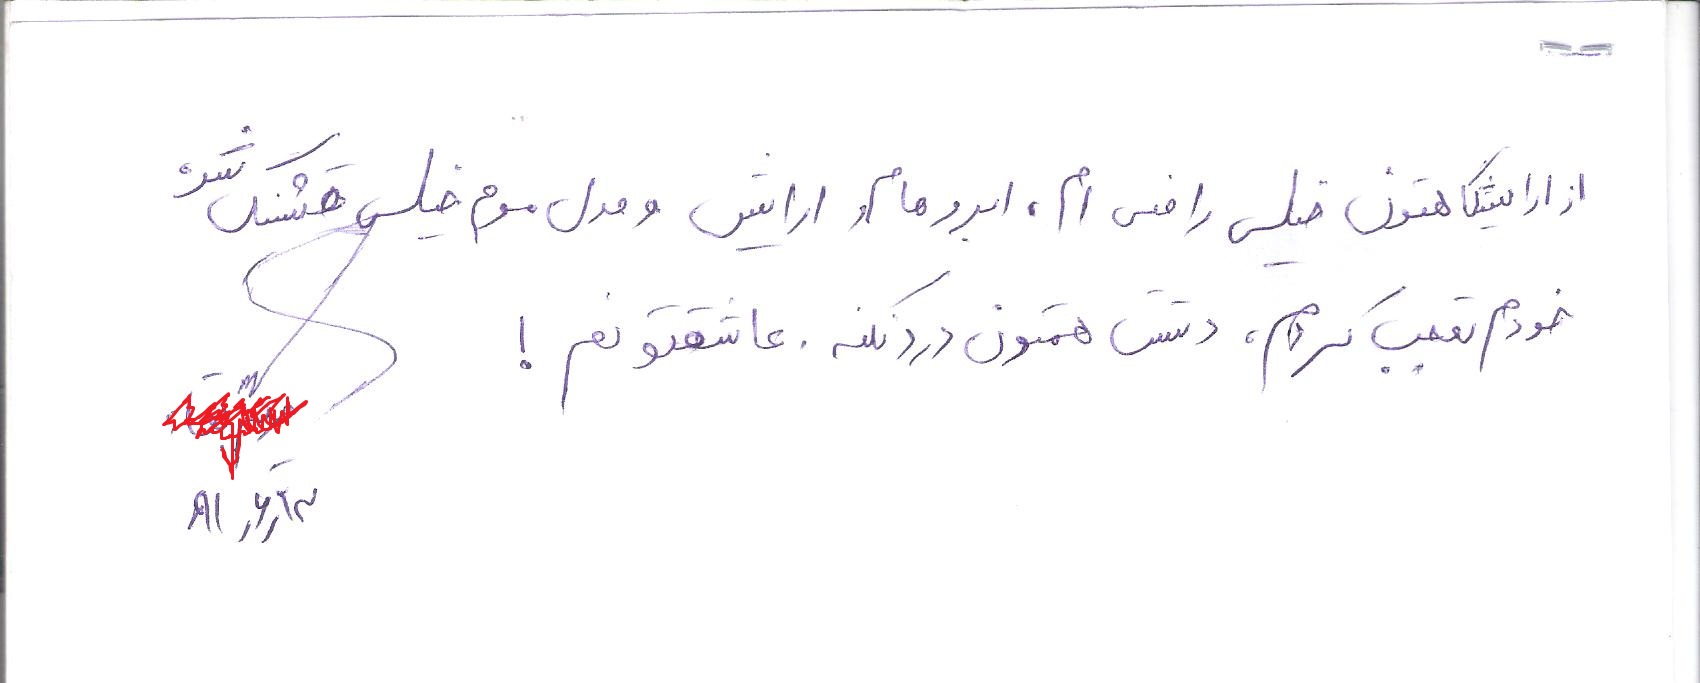 از ارایشگاهتون خیلی راضی ام، ابروهام و ارایش و مدل موم خیلی قشنگ شده
خودم تعجب کردم، دستت همتون درد نکنه. عاشقتونم!